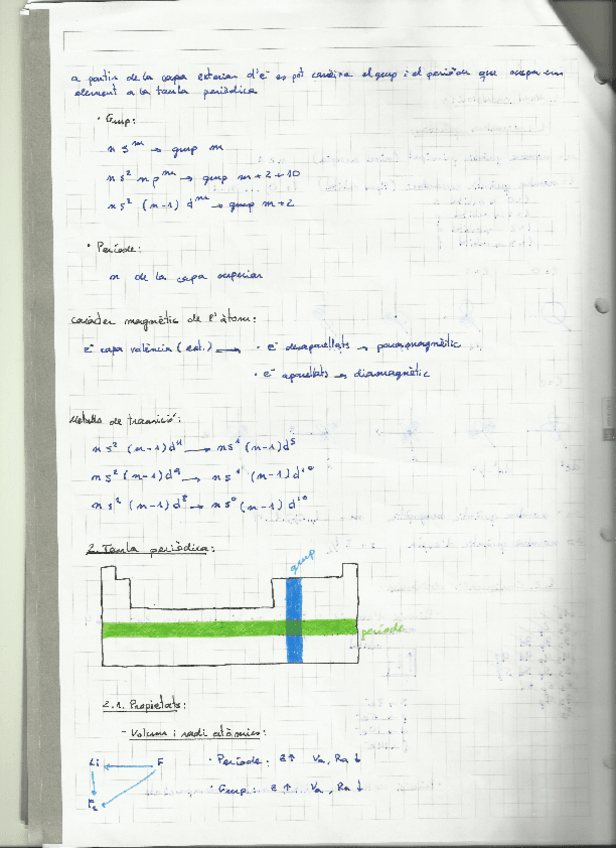 a partir de la capa exterior d'e⁻ es pot conèixer el grup i el període que ocupa un
element a la taula periòdica
· Grup:
n s^m → grup m
n s² n p^m → grup m + 2 + 10
n s² (n-1) d^m → grup m+2
· Període:
n de la capa superior
caràcter magnètic de l'àtom:
e⁻ capa valència (ext.) → · e⁻ desaparellats → paramagnètic
· e⁻ aparellats → diamagnètic
Metalls de transició:
n s² (n-1) d⁴ → n s¹ (n-1) d⁵
n s² (n-1) d⁹ → n s¹ (n-1) d¹⁰
n s² (n-1) d⁸ → n s⁰ (n-1) d¹⁰
2. Taula periòdica:
grup
període
2.1. Propietats:
- Volum i radi atòmics:
Li F · Període: Z↑ Va, Ra ↓
Fr · Grup: Z ↑ Va, Ra ↓